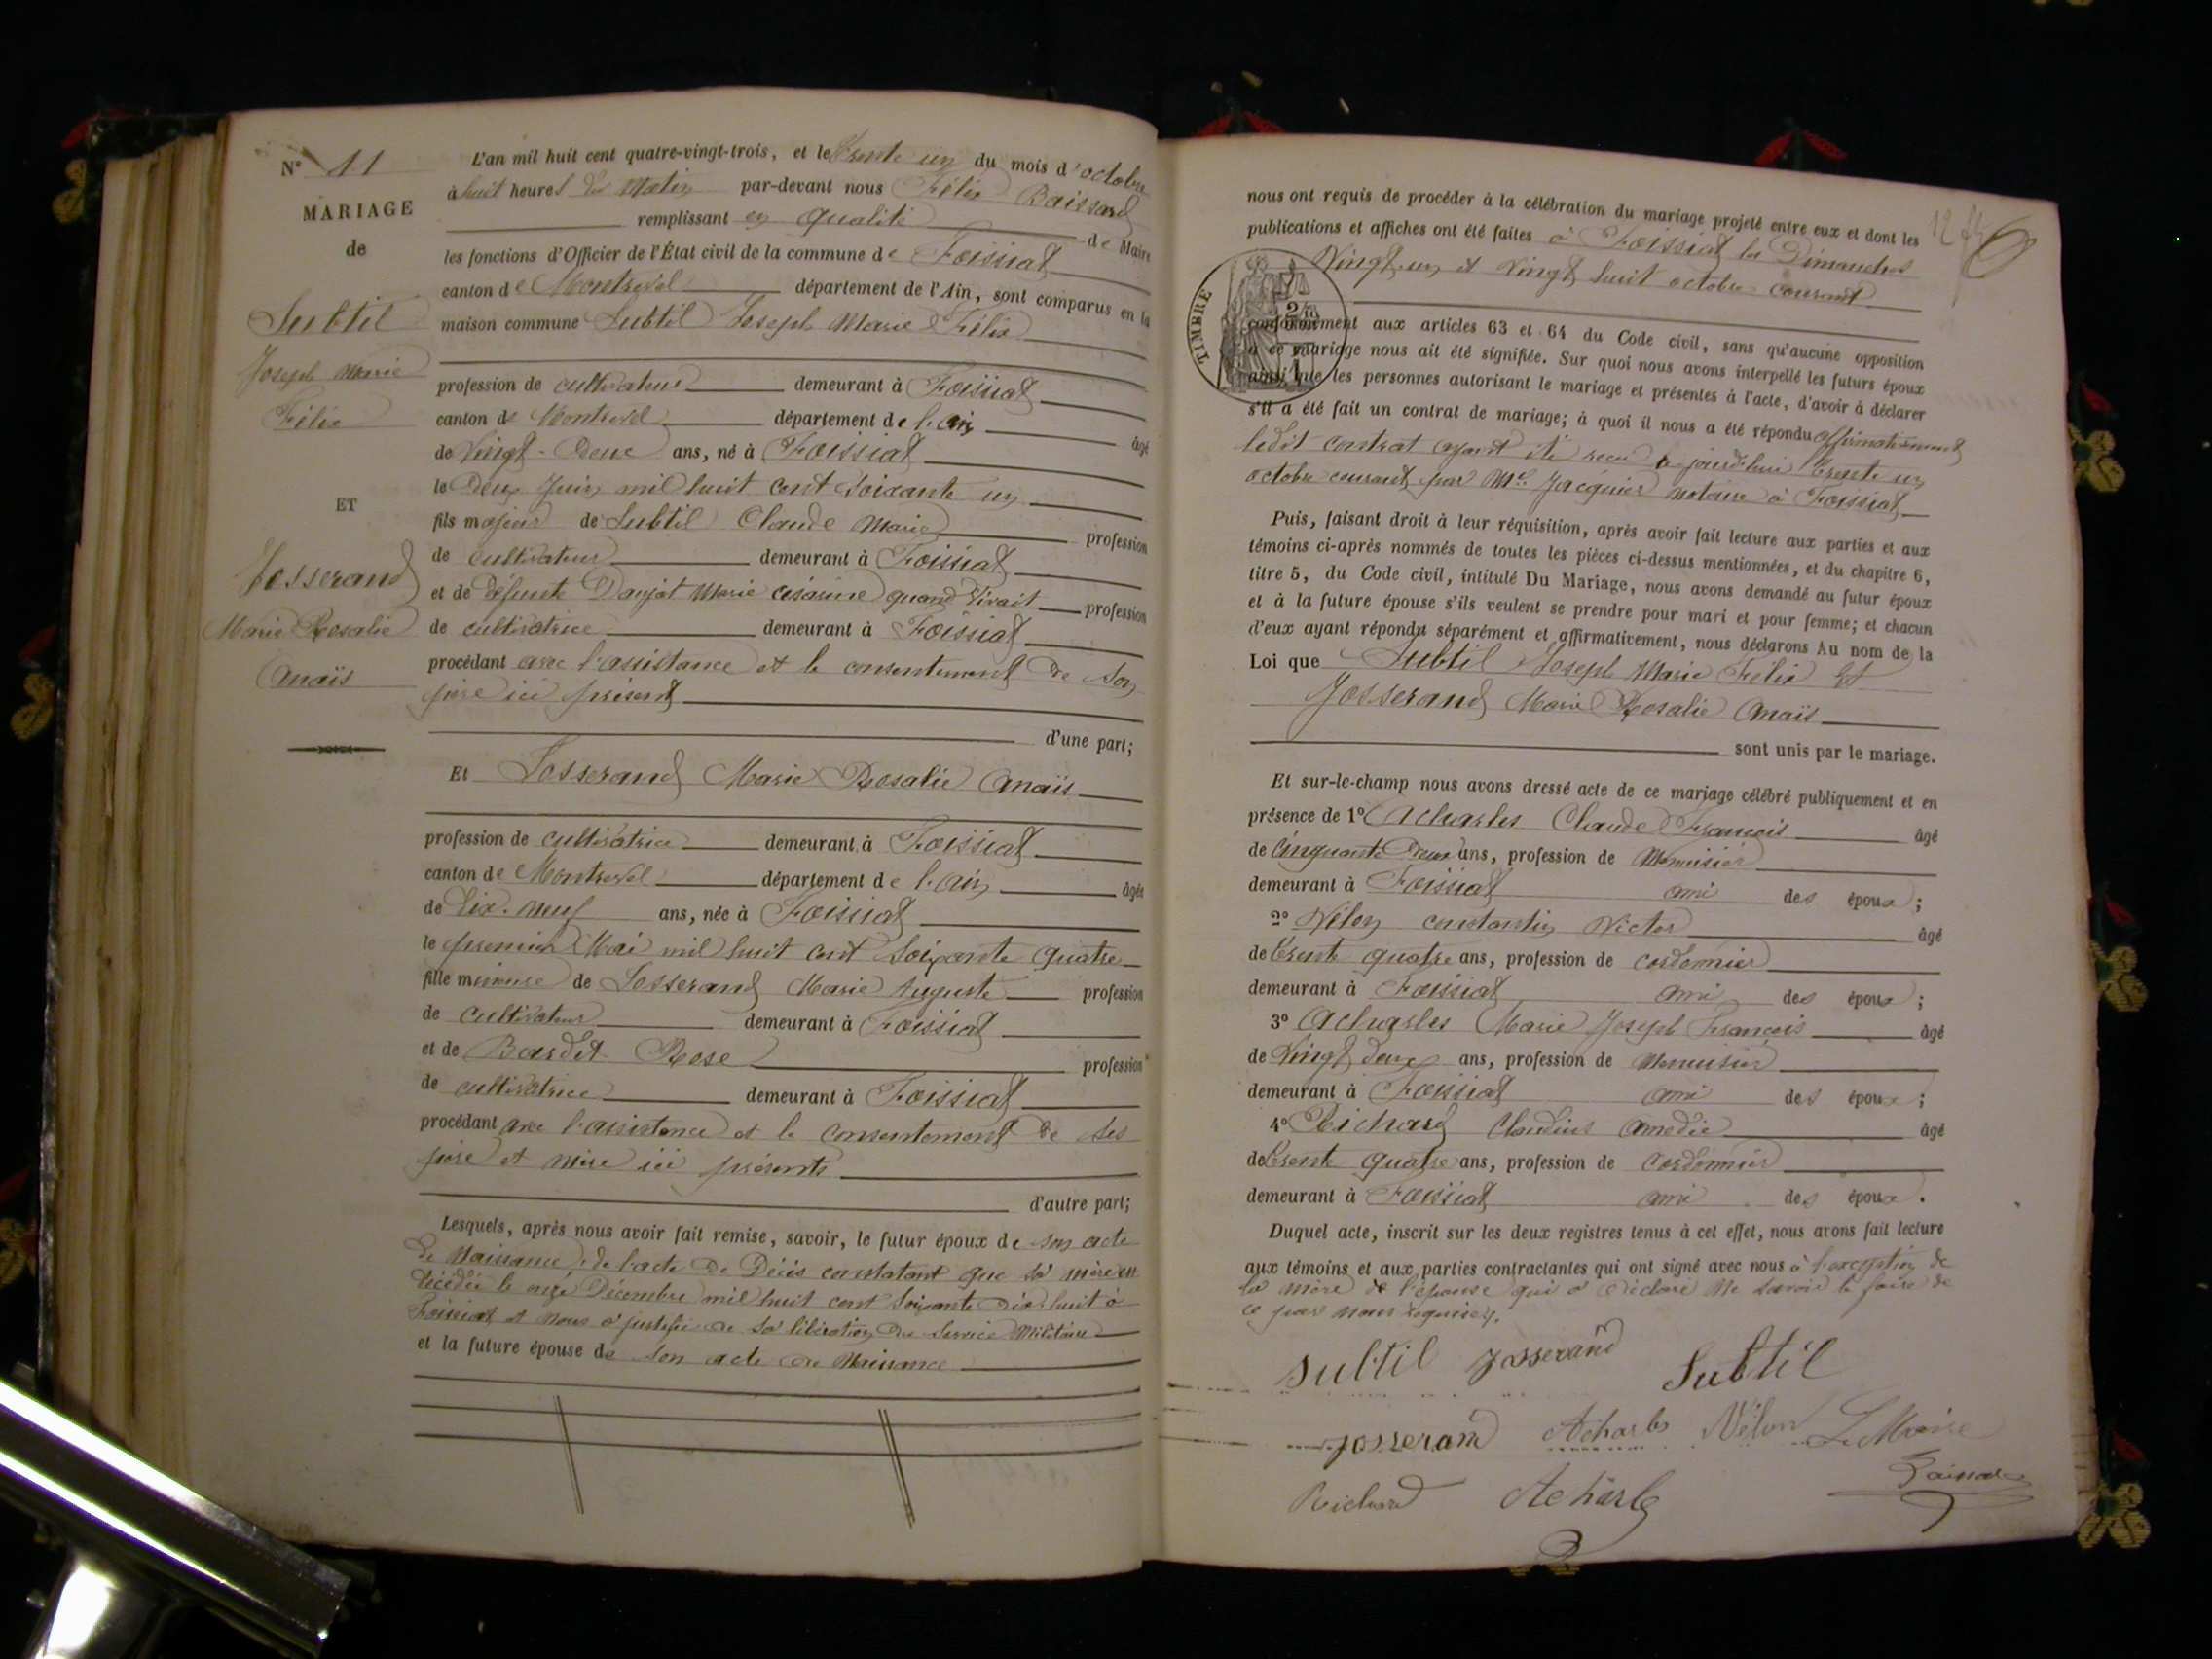 N° 11
MARIAGE
de
Subtil
Joseph Marie
Félix
ET
Josserand
Marie Rosalie
Anaïs
L'an mil huit cent quatre-vingt-trois, et le trente un du mois d'octobre
à huit heures du Matin par-devant nous Félix
remplissant en qualité de Maire
les fonctions d'Officier de l'État civil de la commune de Foissiat
canton de Montrevel département de l'Ain, sont comparus en la
maison commune Subtil Joseph Marie Félix
profession de cultivateur demeurant à Foissiat
canton de Montrevel département de l'Ain âgé
de Vingt-Deux ans, né à Foissiat
le Deux Juin mil huit cent soixante un
fils majeur de Subtil Claude Marie profession
de cultivateur demeurant à Foissiat
et de défunte Danjat Marie césarine quand Vivait profession
de cultivatrice demeurant à Foissiat
procédant avec l'assistance et le consentement de son
père ici présent
d'une part;
Et Josserand Marie Rosalie Anaïs
profession de cultivatrice demeurant à Foissiat
canton de Montrevel département de l'Ain âgée
de Dix-neuf ans, née à Foissiat
le premier Mai mil huit cent soixante quatre
fille mineure de Josserand Marie Auguste profession
de cultivateur demeurant à Foissiat
et de Bardet Rose profession
de cultivatrice demeurant à Foissiat
procédant avec l'assistance et le consentement de ses
père et mère ici présents
d'autre part;
Lesquels, après nous avoir fait remise, savoir, le futur époux de son acte
de Naissance, de l'acte de Décès constatant que sa mère est
décédée le onze Décembre mil huit cent soixante dix huit à
Foissiat et nous a justifié de sa libération du service Militaire
et la future épouse de son acte de Naissance
nous ont requis de procéder à la célébration du mariage projeté entre eux et dont les
publications et affiches ont été faites à Foissiat les Dimanches
Vingt un et Vingt huit octobre courant
TIMBRE
conformément aux articles 63 et 64 du Code civil, sans qu'aucune opposition
à ce mariage nous ait été signifiée. Sur quoi nous avons interpellé les futurs époux
ainsi que les personnes autorisant le mariage et présentes à l'acte, d'avoir à déclarer
s'il a été fait un contrat de mariage; à quoi il nous a été répondu affirmativement
ledit contrat ayant été reçu aujourd'hui trente un
octobre courant par Me Jacquier notaire à Foissiat
Puis, faisant droit à leur réquisition, après avoir fait lecture aux parties et aux
témoins ci-après nommés de toutes les pièces ci-dessus mentionnées, et du chapitre 6,
titre 5, du Code civil, intitulé Du Mariage, nous avons demandé au futur époux
et à la future épouse s'ils veulent se prendre pour mari et pour femme; et chacun
d'eux ayant répondu séparément et affirmativement, nous déclarons Au nom de la
Loi que Subtil Joseph Marie Félix et
Josserand Marie Rosalie Anaïs
sont unis par le mariage.
Et sur-le-champ nous avons dressé acte de ce mariage célébré publiquement et en
présence de 1° Acharles Claude François âgé
de Cinquante Deux ans, profession de Menuisier
demeurant à Foissiat ami des époux;
2° Vélon constantin Victor âgé
de trente quatre ans, profession de cordonnier
demeurant à Foissiat ami des époux;
3° Acharles Marie Joseph François âgé
de Vingt deux ans, profession de Menuisier
demeurant à Foissiat ami des époux;
4° Richard Claudius Amédée âgé
de trente quatre ans, profession de Cordonnier
demeurant à Foissiat ami des époux.
Duquel acte, inscrit sur les deux registres tenus à cet effet, nous avons fait lecture
aux témoins et aux parties contractantes qui ont signé avec nous à l'exception de
la mère de l'épouse qui a déclaré Ne savoir le faire de
ce par nous requise.
Subtil Josserand Subtil
Josserand Acharles Vélon Le Maire
Richard Acharles